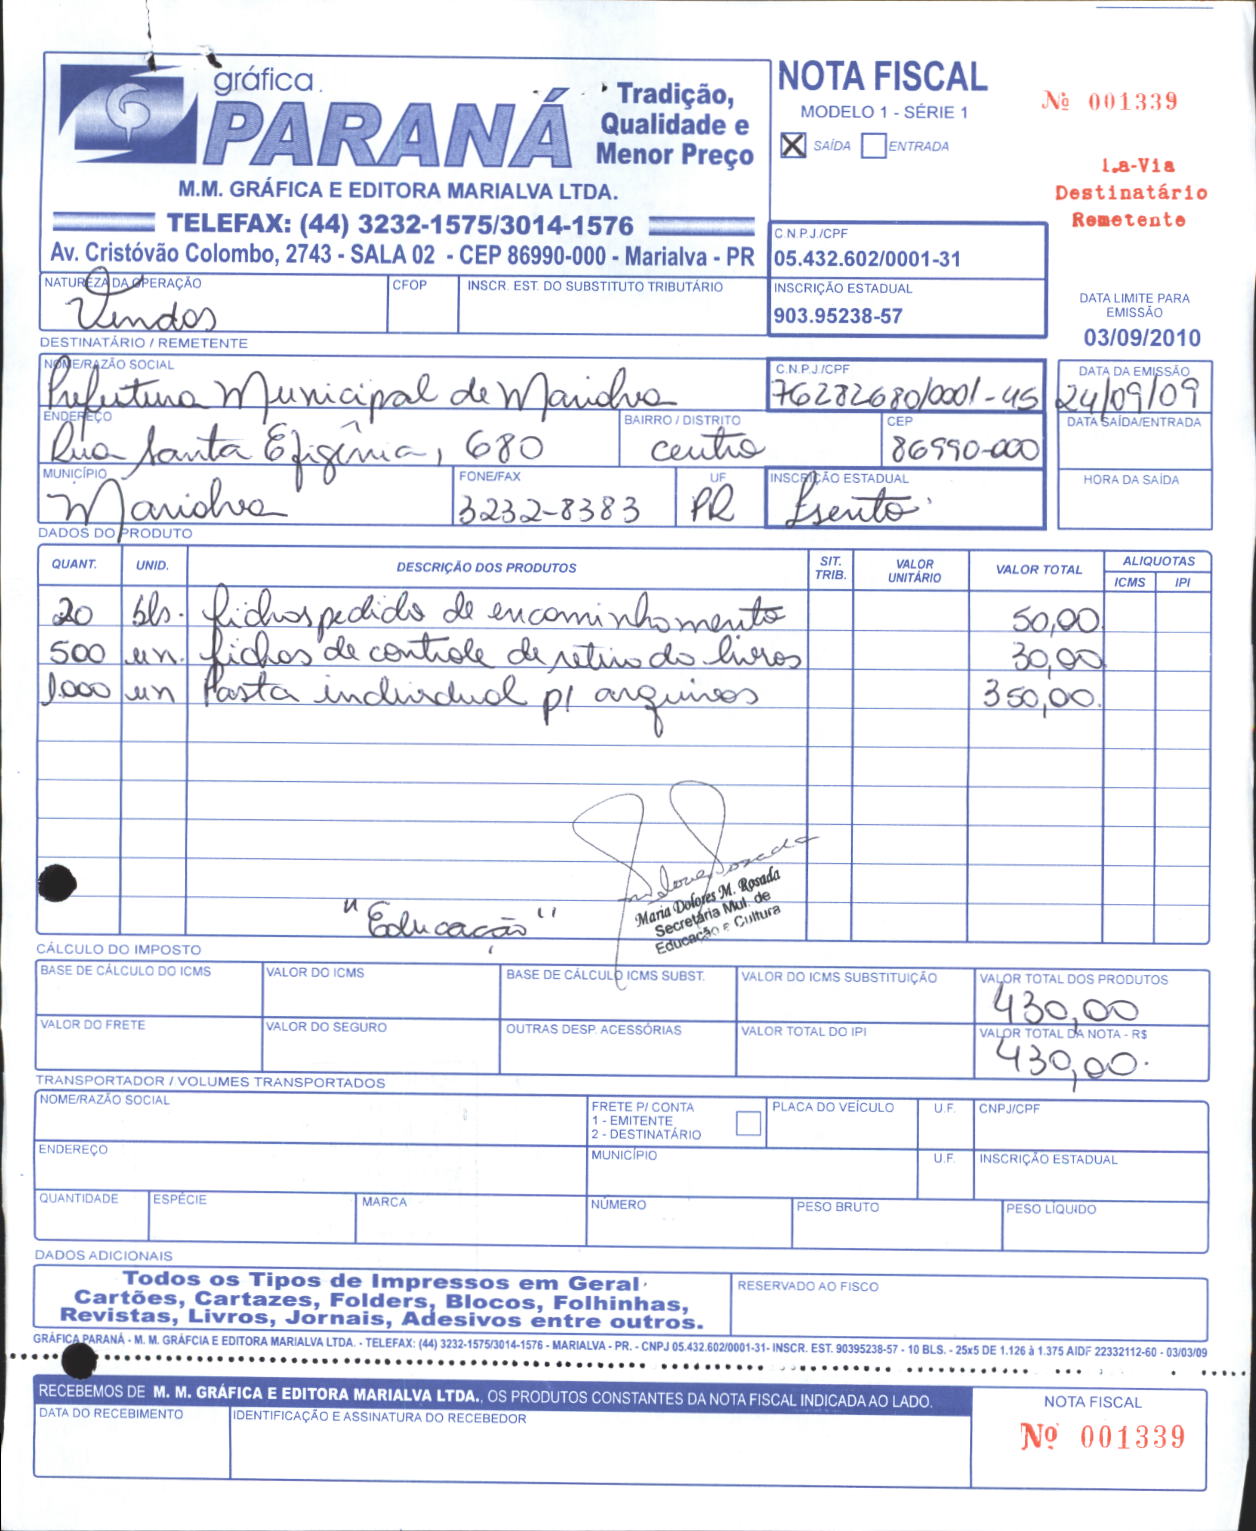 gráfica
PARANÁ
Tradição,
Qualidade e
Menor Preço
M.M. GRÁFICA E EDITORA MARIALVA LTDA.
TELEFAX: (44) 3232-1575/3014-1576
Av. Cristóvão Colombo, 2743 - SALA 02 - CEP 86990-000 - Marialva - PR
NOTA FISCAL
MODELO 1 - SÉRIE 1
X SAÍDA ENTRADA
Nº 001339
1.a-Via
Destinatário
Remetente
C.N.P.J./CPF
05.432.602/0001-31
NATUREZA DA OPERAÇÃO CFOP INSCR. EST. DO SUBSTITUTO TRIBUTÁRIO INSCRIÇÃO ESTADUAL
Vendas 903.95238-57
DATA LIMITE PARA
EMISSÃO
03/09/2010
DESTINATÁRIO / REMETENTE
NOME/RAZÃO SOCIAL C.N.P.J./CPF DATA DA EMISSÃO
Prefeitura Municipal de Marialva 76282680/0001-45 24/09/09
ENDEREÇO BAIRRO / DISTRITO CEP DATA SAÍDA/ENTRADA
Rua Santa Efigênia, 680 centro 86990-000
MUNICÍPIO FONE/FAX UF INSCRIÇÃO ESTADUAL HORA DA SAÍDA
Marialva 3232-8383 PR Isento
DADOS DO PRODUTO
QUANT. UNID. DESCRIÇÃO DOS PRODUTOS SIT. TRIB. VALOR UNITÁRIO VALOR TOTAL ALIQUOTAS
ICMS IPI
20 bls. fichas pedido de encaminhamento 50,00
500 un. fichas de controle de retirada livros 30,00
1.000 un Pasta individual p/ arquivos 350,00
"Educação"
Maria Dolores M. Rosada
Secretária Mul. de
Educação e Cultura
CÁLCULO DO IMPOSTO
BASE DE CÁLCULO DO ICMS VALOR DO ICMS BASE DE CÁLCULO ICMS SUBST. VALOR DO ICMS SUBSTITUIÇÃO VALOR TOTAL DOS PRODUTOS
430,00
VALOR DO FRETE VALOR DO SEGURO OUTRAS DESP. ACESSÓRIAS VALOR TOTAL DO IPI VALOR TOTAL DA NOTA - R$
430,00
TRANSPORTADOR / VOLUMES TRANSPORTADOS
NOME/RAZÃO SOCIAL FRETE P/ CONTA PLACA DO VEÍCULO U.F. CNPJ/CPF
1 - EMITENTE
2 - DESTINATÁRIO
ENDEREÇO MUNICÍPIO U.F. INSCRIÇÃO ESTADUAL
QUANTIDADE ESPÉCIE MARCA NÚMERO PESO BRUTO PESO LÍQUIDO
DADOS ADICIONAIS
Todos os Tipos de Impressos em Geral
Cartões, Cartazes, Folders, Blocos, Folhinhas,
Revistas, Livros, Jornais, Adesivos entre outros.
RESERVADO AO FISCO
GRÁFICA PARANÁ - M. M. GRÁFCIA E EDITORA MARIALVA LTDA. - TELEFAX: (44) 3232-1575/3014-1576 - MARIALVA - PR. - CNPJ 05.432.602/0001-31- INSCR. EST. 90395238-57 - 10 BLS. - 25x5 DE 1.126 à 1.375 AIDF 22332112-60 - 03/03/09
RECEBEMOS DE M. M. GRÁFICA E EDITORA MARIALVA LTDA., OS PRODUTOS CONSTANTES DA NOTA FISCAL INDICADA AO LADO.
DATA DO RECEBIMENTO IDENTIFICAÇÃO E ASSINATURA DO RECEBEDOR
NOTA FISCAL
Nº 001339